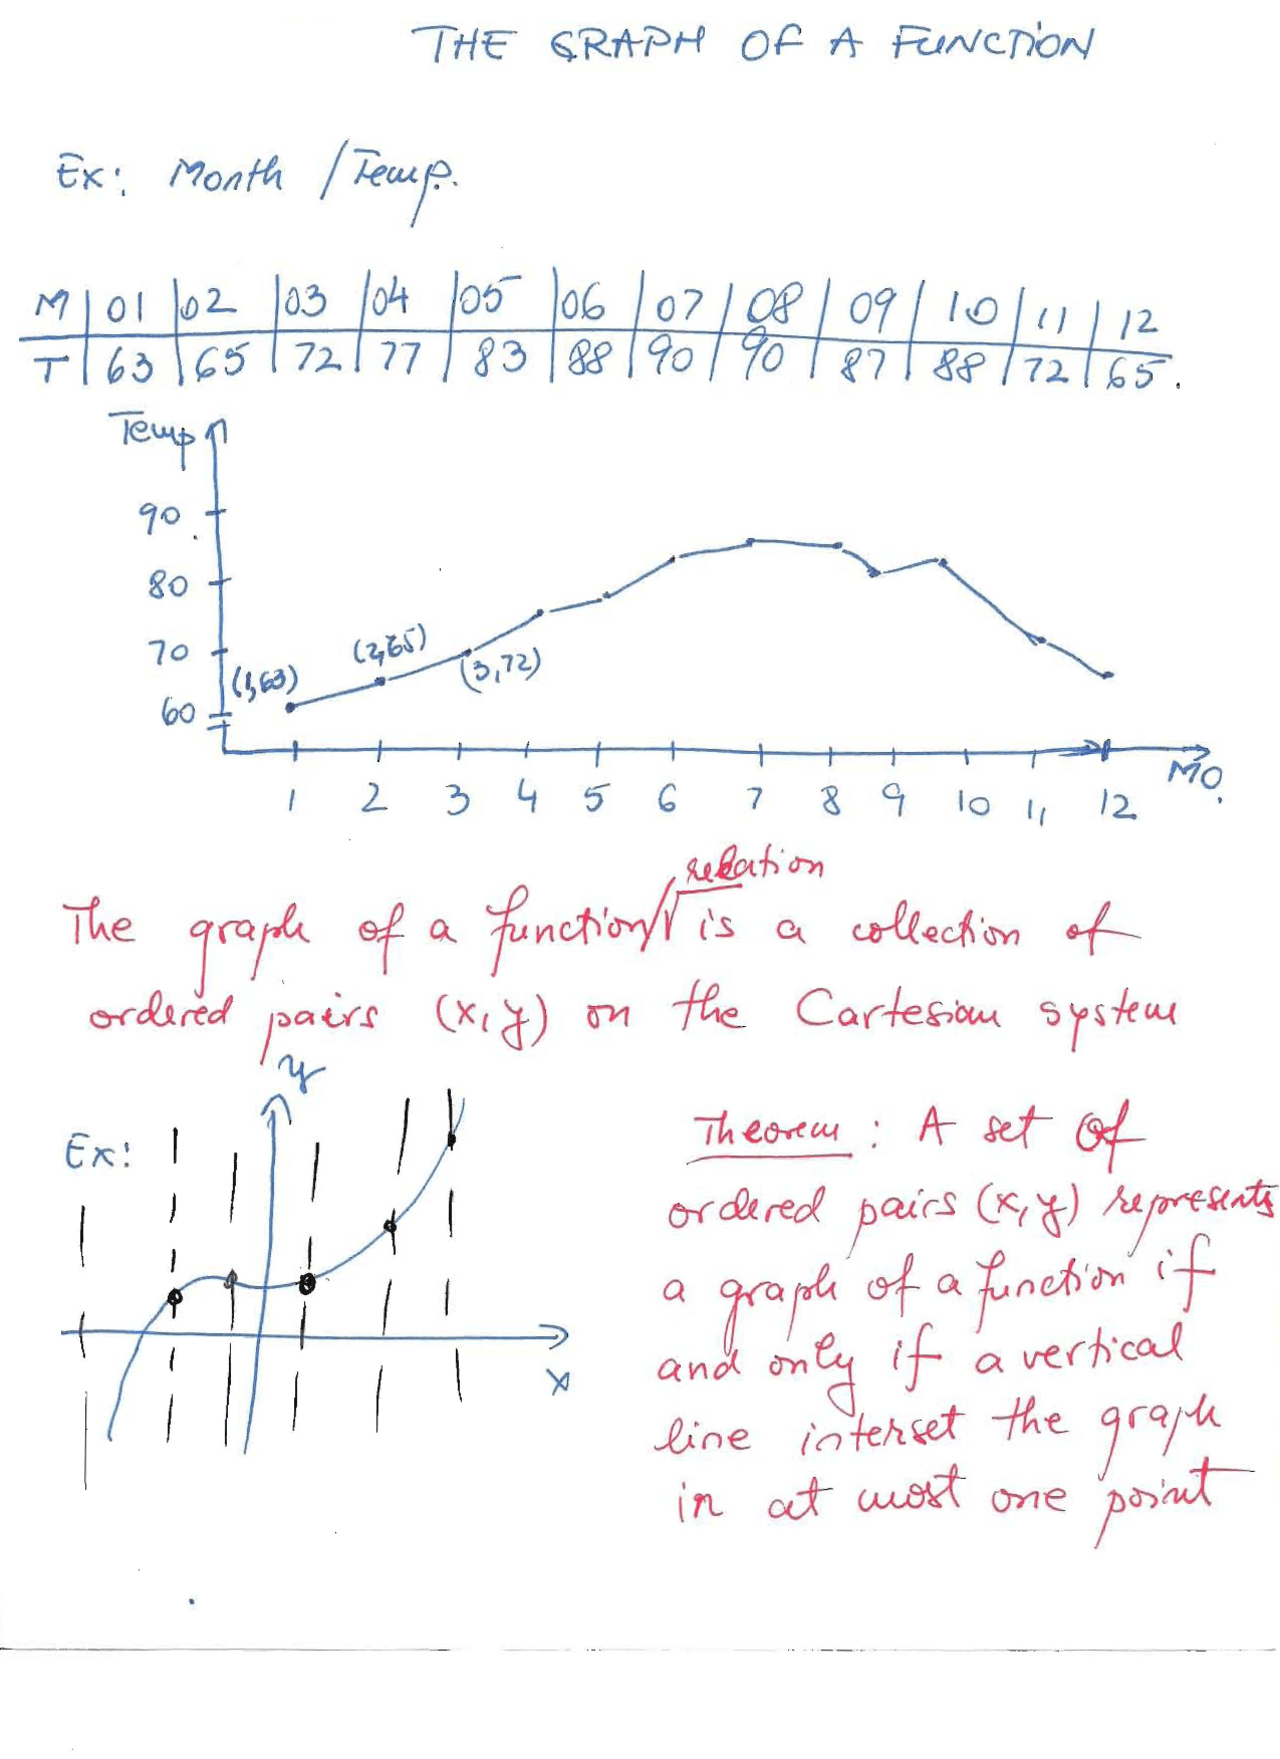 THE GRAPH OF A FUNCTION
Ex: Month / Temp.
M | 01 | 02 | 03 | 04 | 05 | 06 | 07 | 08 | 09 | 10 | 11 | 12
T | 63 | 65 | 72 | 77 | 83 | 88 | 90 | 90 | 87 | 88 | 72 | 65.
Temp
90
80
70
60
(1,63)
(2,65)
(3,72)
1 2 3 4 5 6 7 8 9 10 11 12
MO.
relation
The graph of a function/ is a collection of
ordered pairs (x, y) on the Cartesian system
y
Ex:
x
Theorem : A set of
ordered pairs (x, y) represents
a graph of a function if
and only if a vertical
line interset the graph
in at most one point